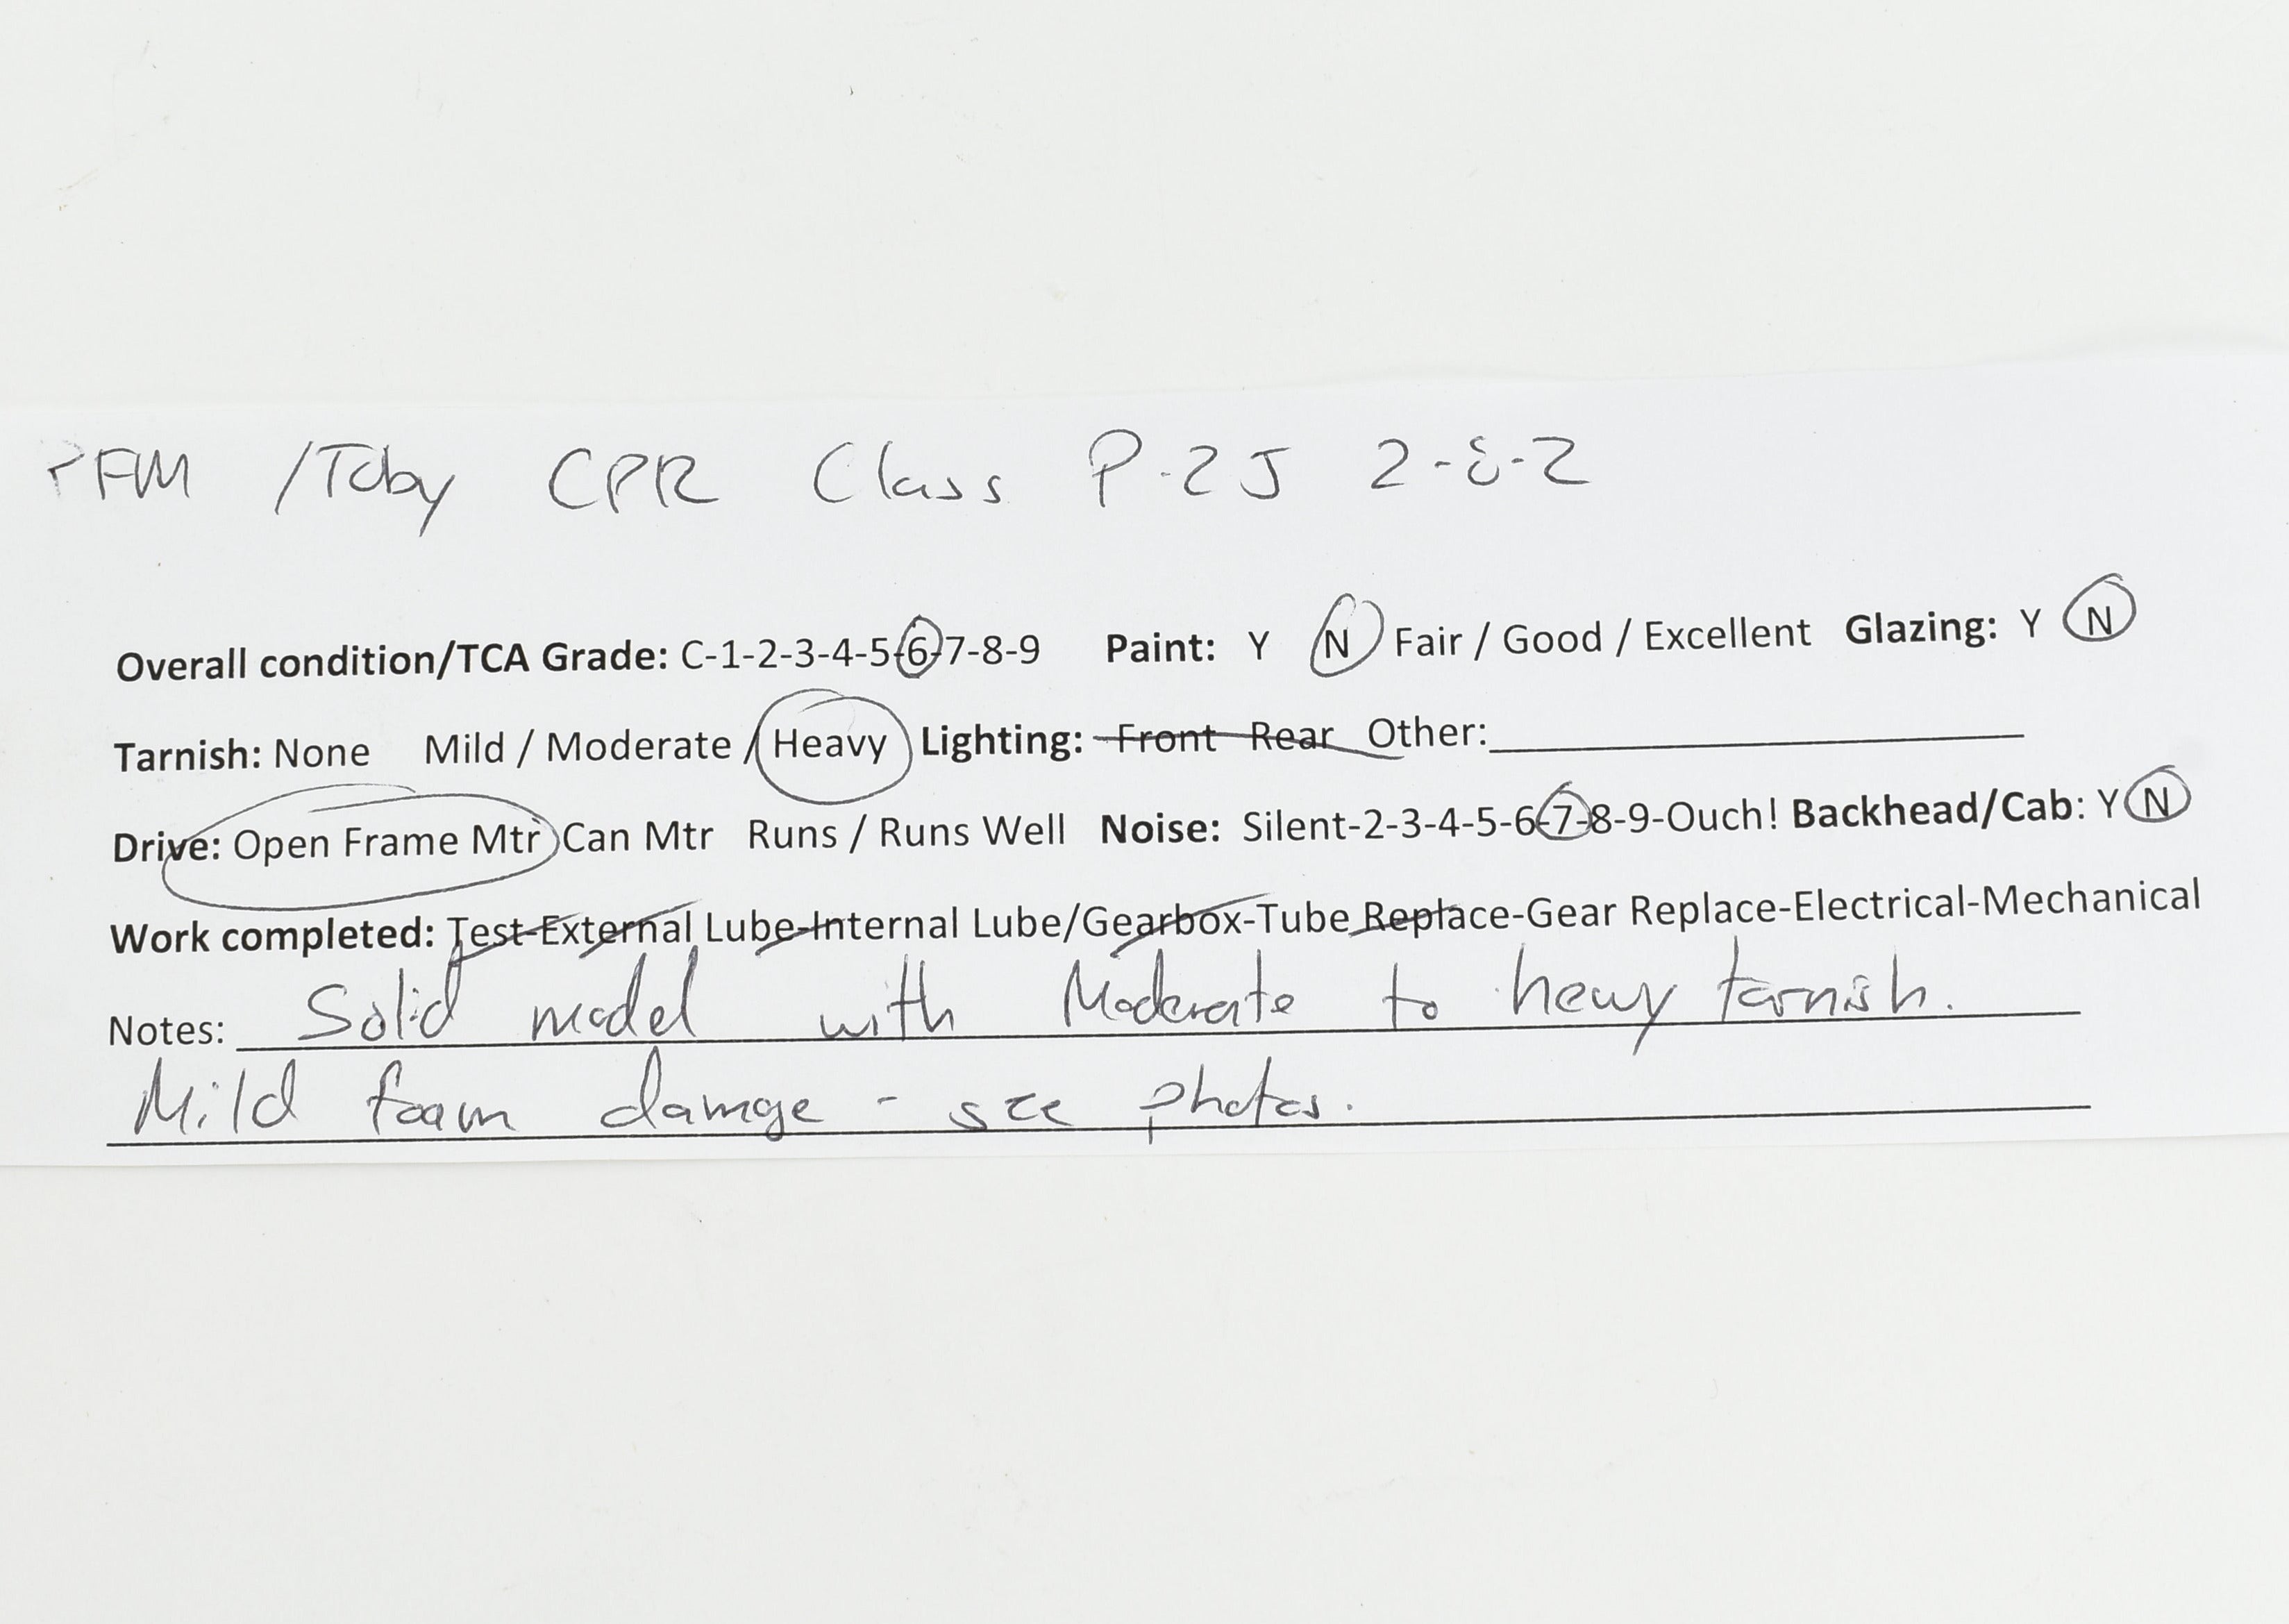 PFM /Toby CPR Class P-2J 2-8-2
Overall condition/TCA Grade: C-1-2-3-4-5-6-7-8-9 Paint: Y N Fair / Good / Excellent Glazing: Y N
Tarnish: None Mild / Moderate / Heavy Lighting: Front Rear Other:
Drive: Open Frame Mtr Can Mtr Runs / Runs Well Noise: Silent-2-3-4-5-6-7-8-9-Ouch! Backhead/Cab: Y N
Work completed: Test-External Lube-Internal Lube/Gearbox-Tube Replace-Gear Replace-Electrical-Mechanical
Notes: Solid model with Moderate to heavy tarnish.
Mild foam damage - see photos.